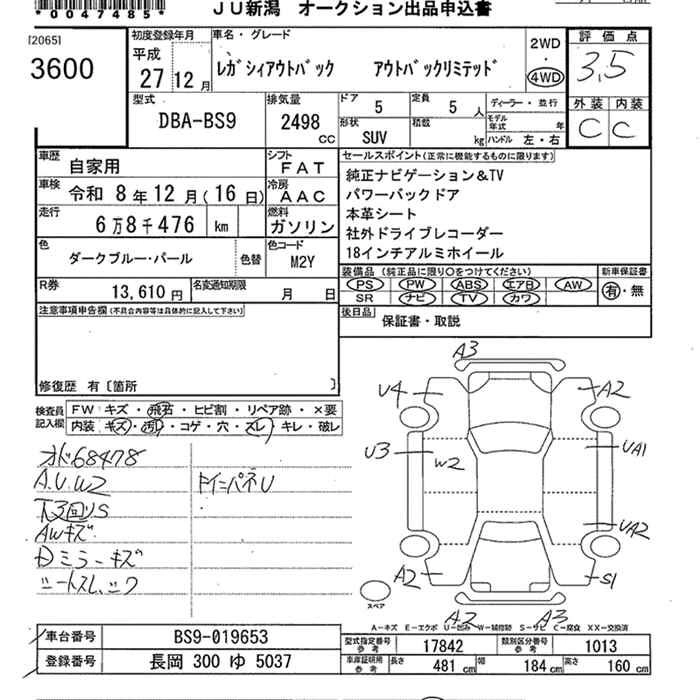 *0047485*
JU新潟 オークション出品申込書
[2065]
3600
初度登録年月
平成
27 12 月
車名・グレード
レガシィアウトバック アウトバックリミテッド
2WD
・
4WD
評価点
3.5
外装 内装
C C
型式
DBA-BS9
排気量
2498 cc
ドア 5
定員 5 人
形状 SUV
積載 kg
ディーラー・並行
モデル年式 年
ハンドル 左・右
車歴 自家用
シフト FAT
車検 令和 8 年 12 月 (16 日)
冷房 AAC
走行 6万8千476 km
燃料 ガソリン
色 ダークブルー・パール 色替
色コード M2Y
R券 13,610 円
名変通知期限 月 日
セールスポイント(正常に機能するものに限ります)
純正ナビゲーション&TV
パワーバックドア
本革シート
社外ドライブレコーダー
18インチアルミホイール
装備品(純正品に限り○をつけてください) 新車保証書
PS PW ABS エアB AW 有・無
SR ナビ TV カワ
後日品 保証書・取説
注意事項申告欄(不具合内容等は具体的に記入して下さい)
修復歴 有〔箇所 〕
検査員記入欄
FW キズ・飛石・ヒビ割・リペア跡・×要
内装 キズ・汚れ・コゲ・穴・スレ・キレ・破レ
オド68478
A.U.W2
下3回りS
AWキズ
Dミラーキズ
シートスレ、シワ
A3
U4
A2
U3
W2
UA1
UA2
A2
S1
スペア
A2
A3
A-キズ E-エクボ U-凹み W-補修跡 S-サビ C-腐食 XX-交換済
車台番号 BS9-019653
登録番号 長岡 300 ゆ 5037
型式指定番号 参考 17842
類別区分番号 参考 1013
車庫証明用 参考 長さ 481 cm 幅 184 cm 高さ 160 cm